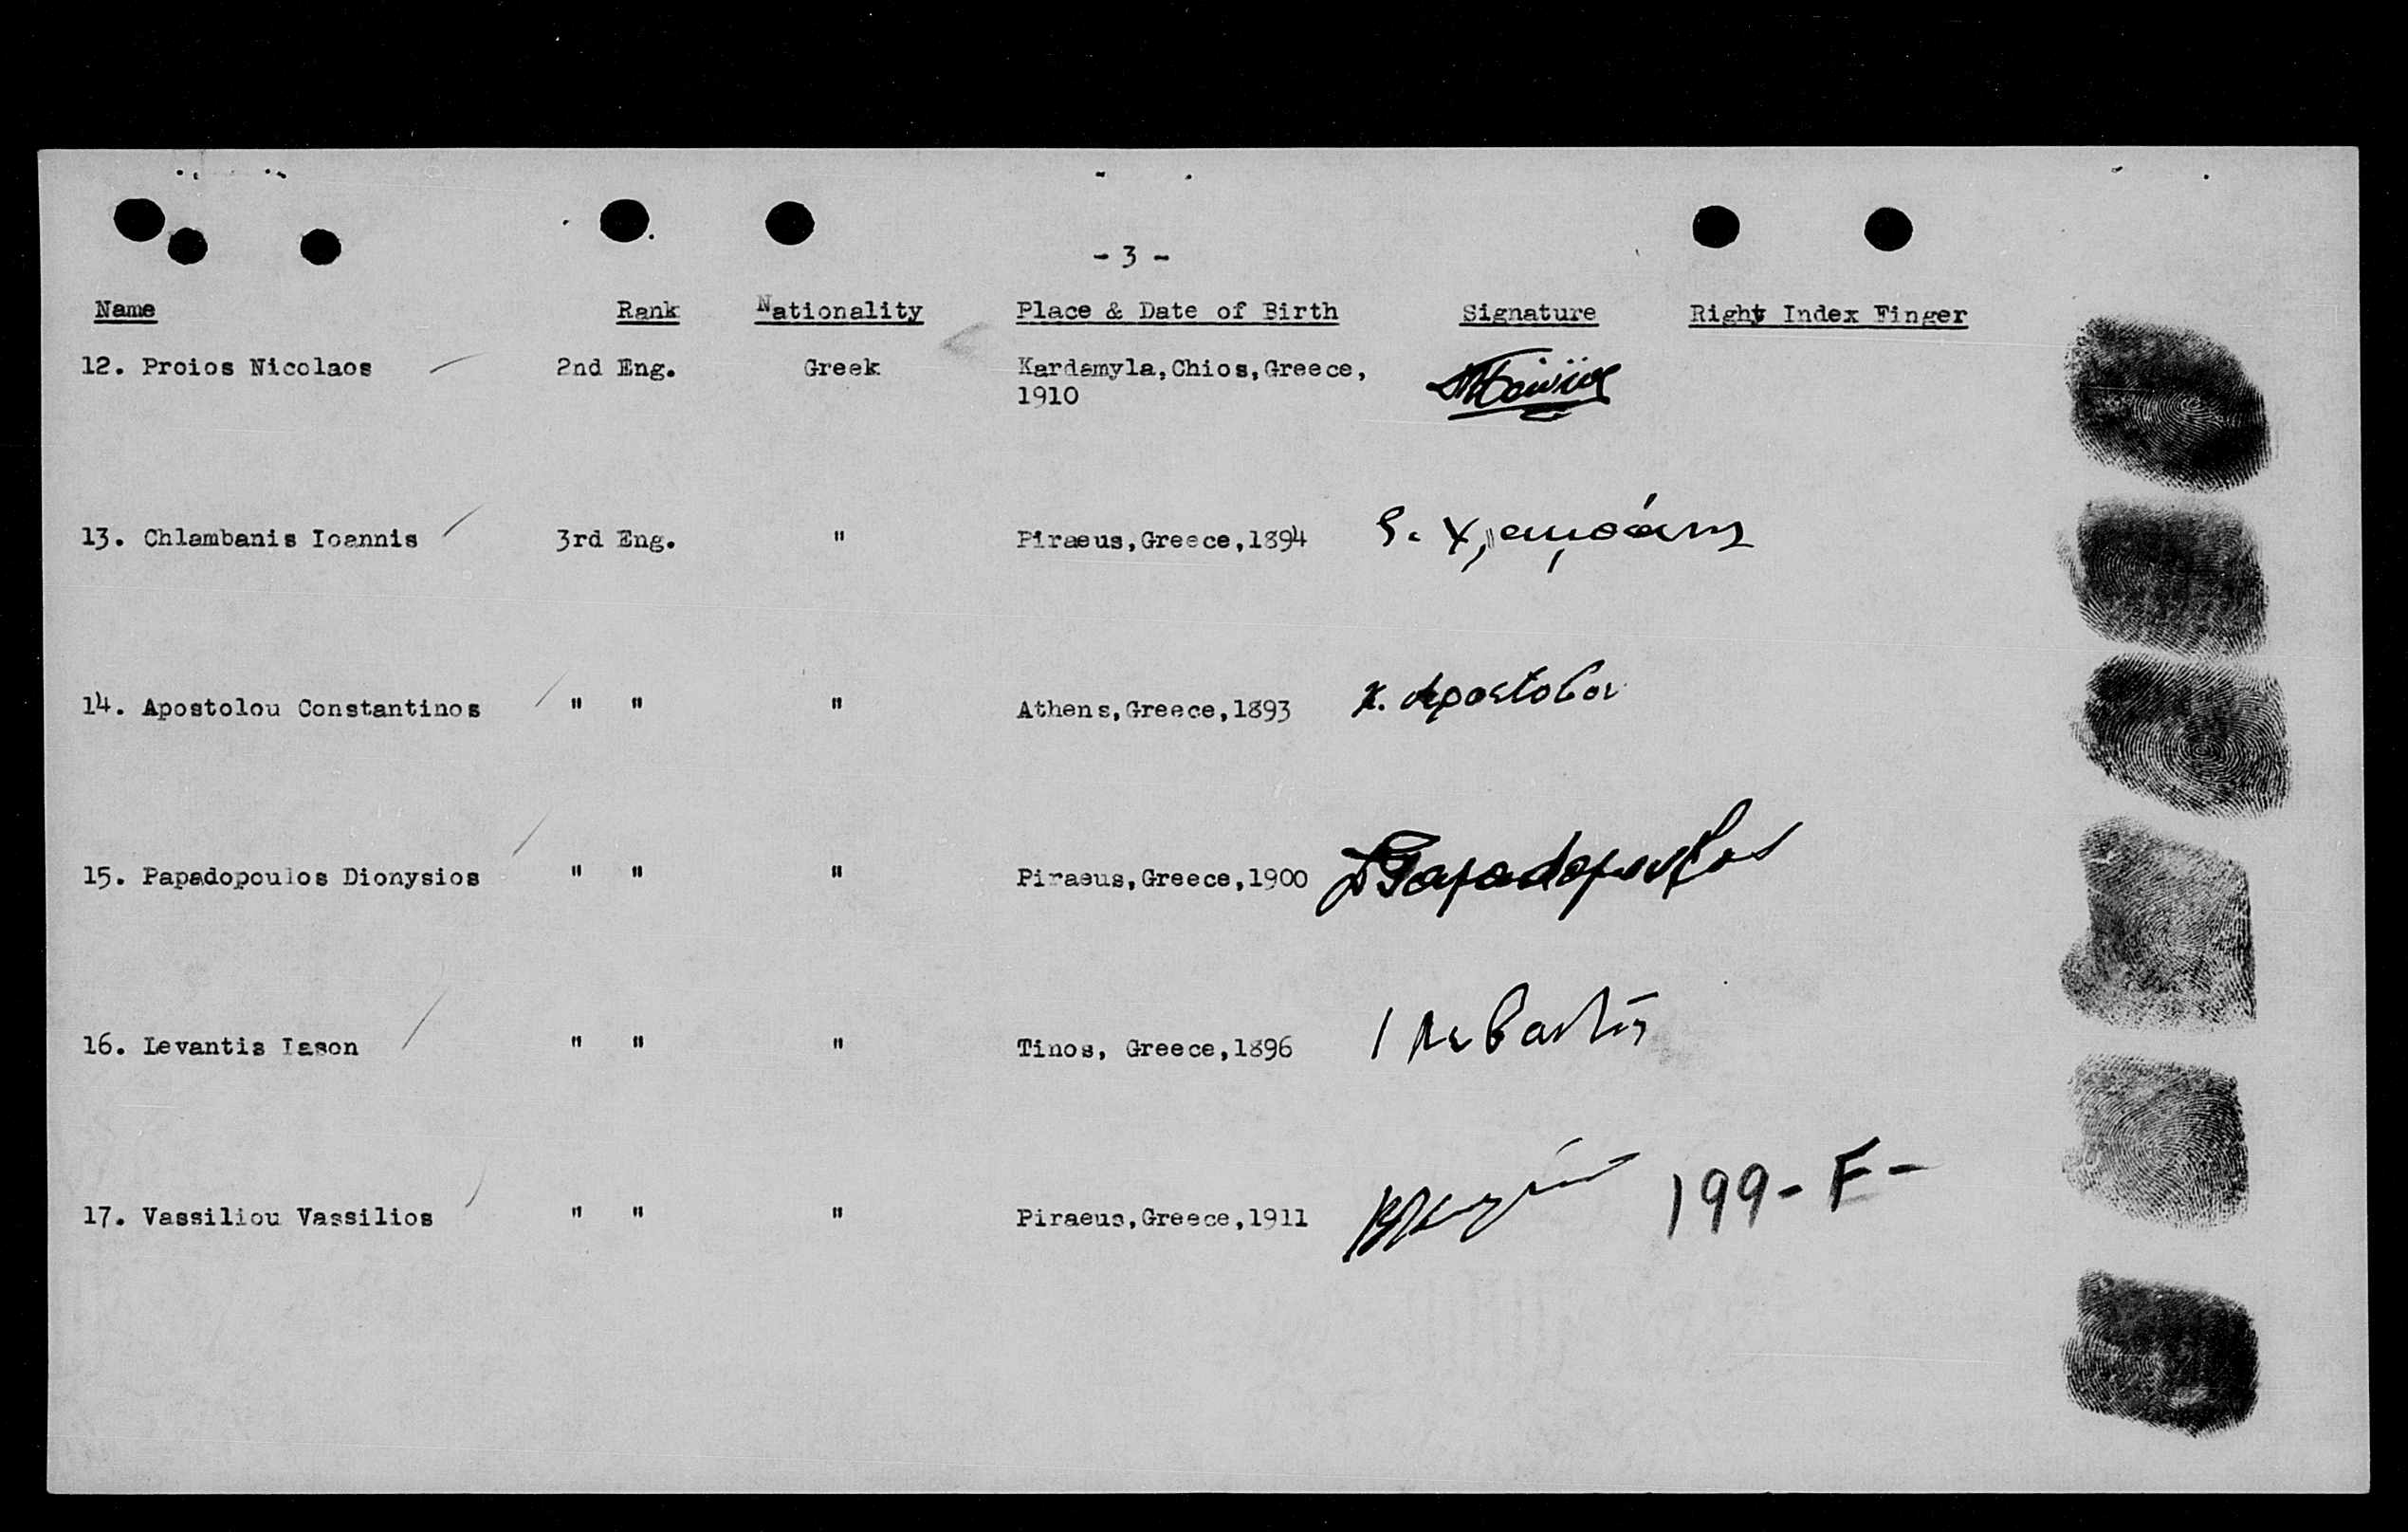 - 3 -
Name Rank Nationality Place & Date of Birth Signature Right Index Finger
12. Proios Nicolaos 2nd Eng. Greek Kardamyla, Chios, Greece,
1910
13. Chlambanis Ioannis 3rd Eng. " Piraeus, Greece, 1894
14. Apostolou Constantinos " " " Athens, Greece, 1893 K. Apostolou
15. Papadopoulos Dionysios " " " Piraeus, Greece, 1900 D Papadopoulos
16. Levantis Iason " " " Tinos, Greece, 1896
17. Vassiliou Vassilios " " " Piraeus, Greece, 1911 199-F-